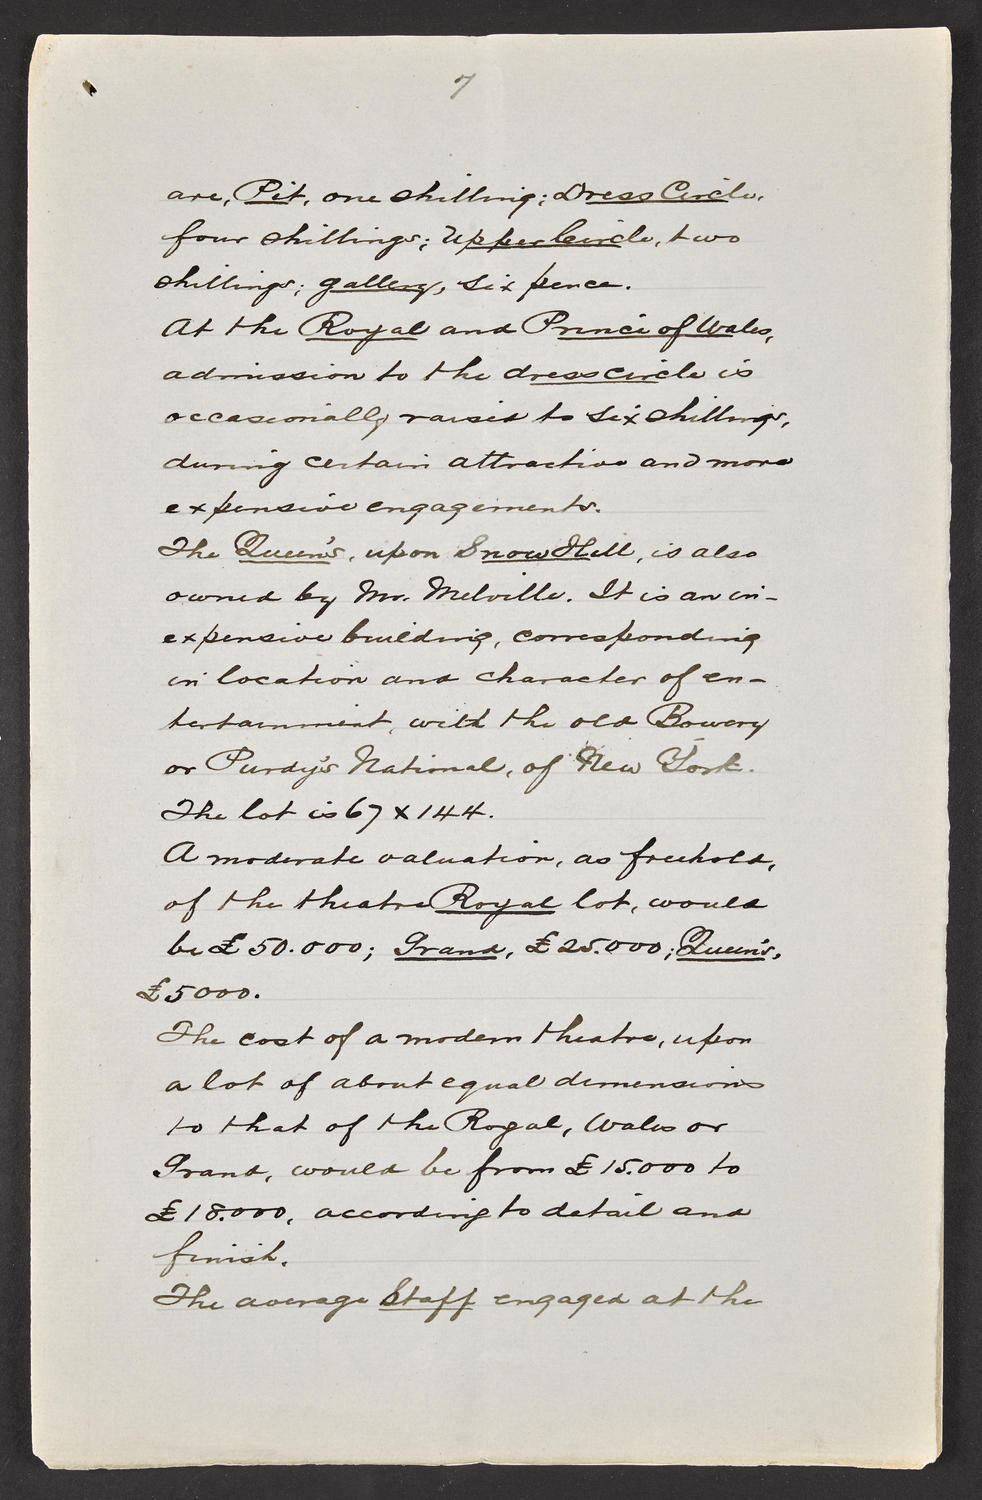 7
are, Pit, one shilling; Dress Circle,
four shillings; Upper Circle, two
shillings; gallery, six pence.
At the Royal and Prince of Wales,
admission to the dress circle is
occasionally raised to six shillings,
during certain attractive and more
expensive engagements.
The Queen's, upon Snow Hill, is also
owned by Mr. Melville. It is an in-
expensive building, corresponding
in location and character of en-
tertainment, with the old Bowery
or Purdy's National, of New York.
The lot is 67 x 144.
A moderate valuation, as freehold,
of the theatre Royal lot, would
be £50.000; Grand, £25.000; Queen's,
£5000.
The cost of a modern theatre, upon
a lot of about equal dimensions
to that of the Royal, Wales or
Grand, would be from £15.000 to
£18.000, according to detail and
finish.
The average Staff engaged at the